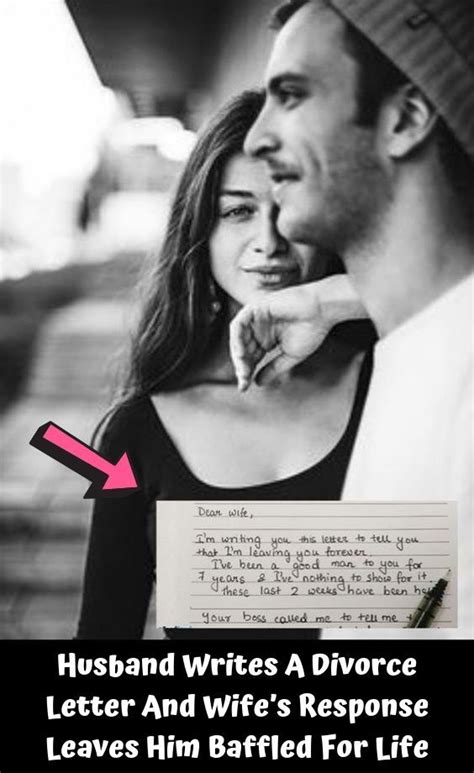 Dear Wife,
I'm writing you this letter to tell you
that I'm leaving you forever.
I've been a good man to you for
7 years & I've nothing to show for it.
These last 2 weeks have been
Your boss called me to tell me
Husband Writes A Divorce
Letter And Wife's Response
Leaves Him Baffled For Life